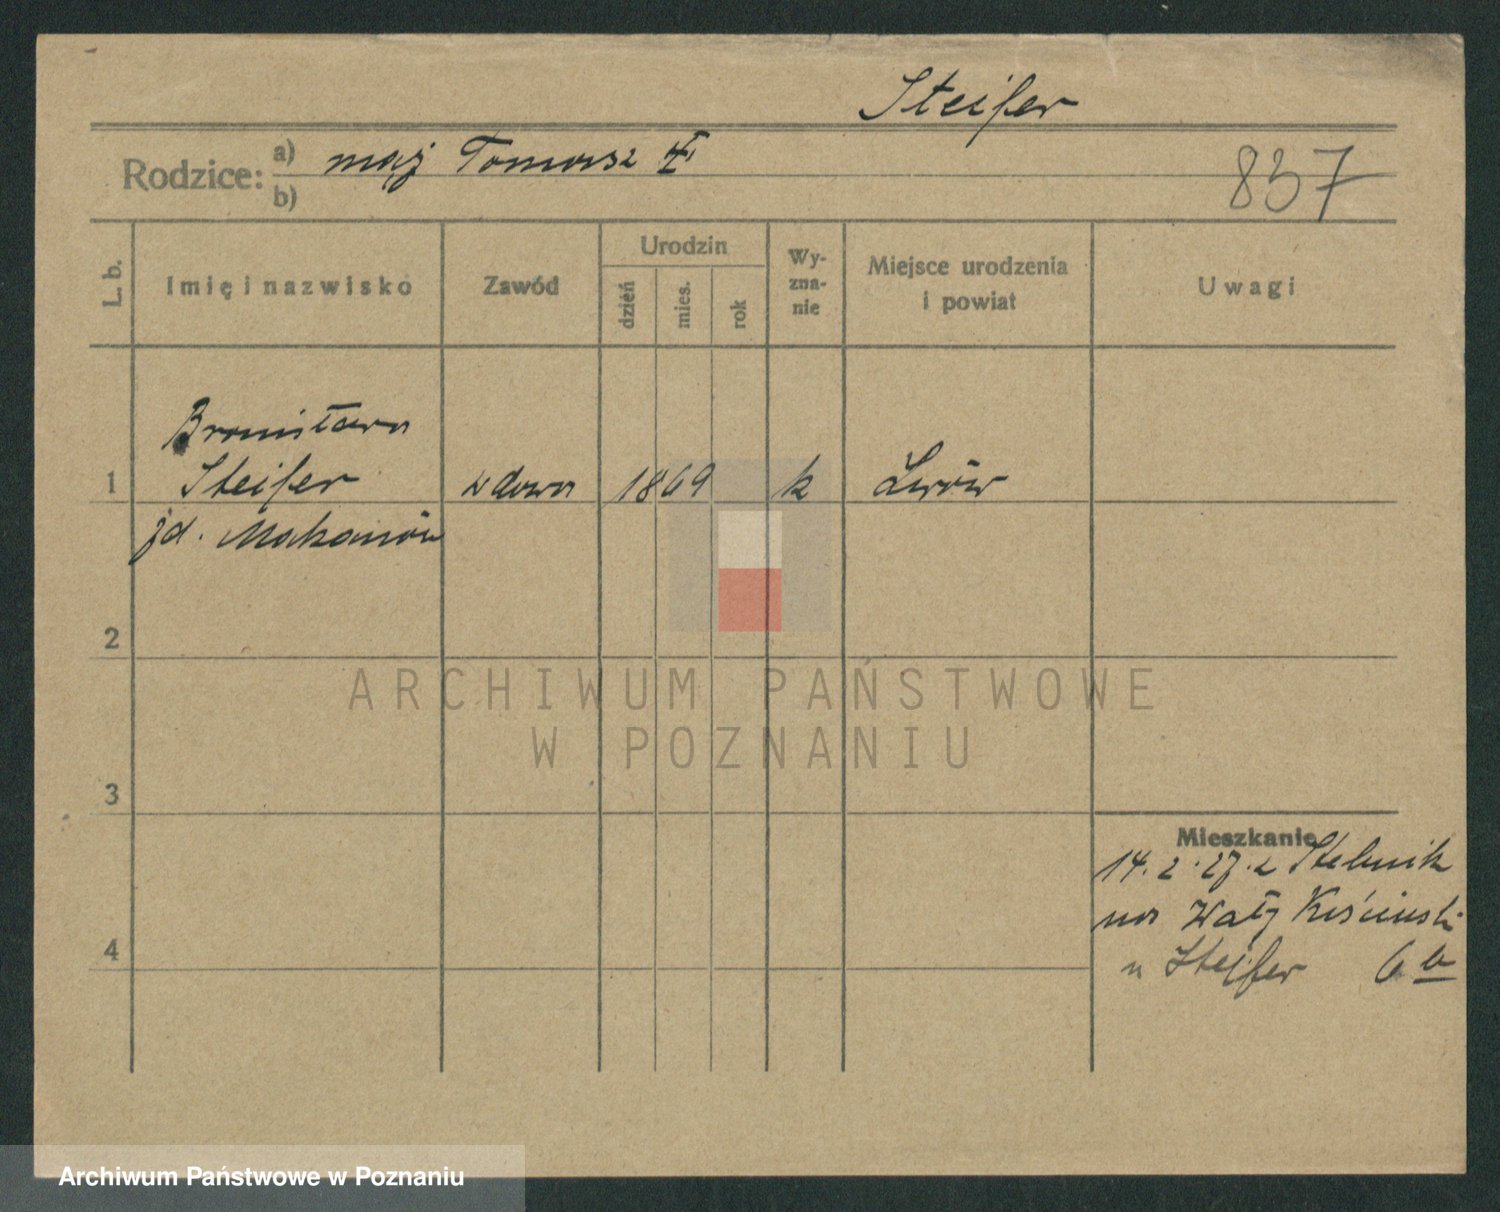 Steifer
Rodzice: a) mąż Tomasz
b)
837
L. b.
Imię i nazwisko
Zawód
Urodzin
dzień
mies.
rok
Wy-
zna-
nie
Miejsce urodzenia
i powiat
Uwagi
Bronisława
1 Steifer wdowa 1869 k Lwów
2
3
4
Mieszkanie
14.2.27. z Stebnik
Wały
u Steifer 6 b
ARCHIWUM PAŃSTWOWE
W POZNANIU
Archiwum Państwowe w Poznaniu